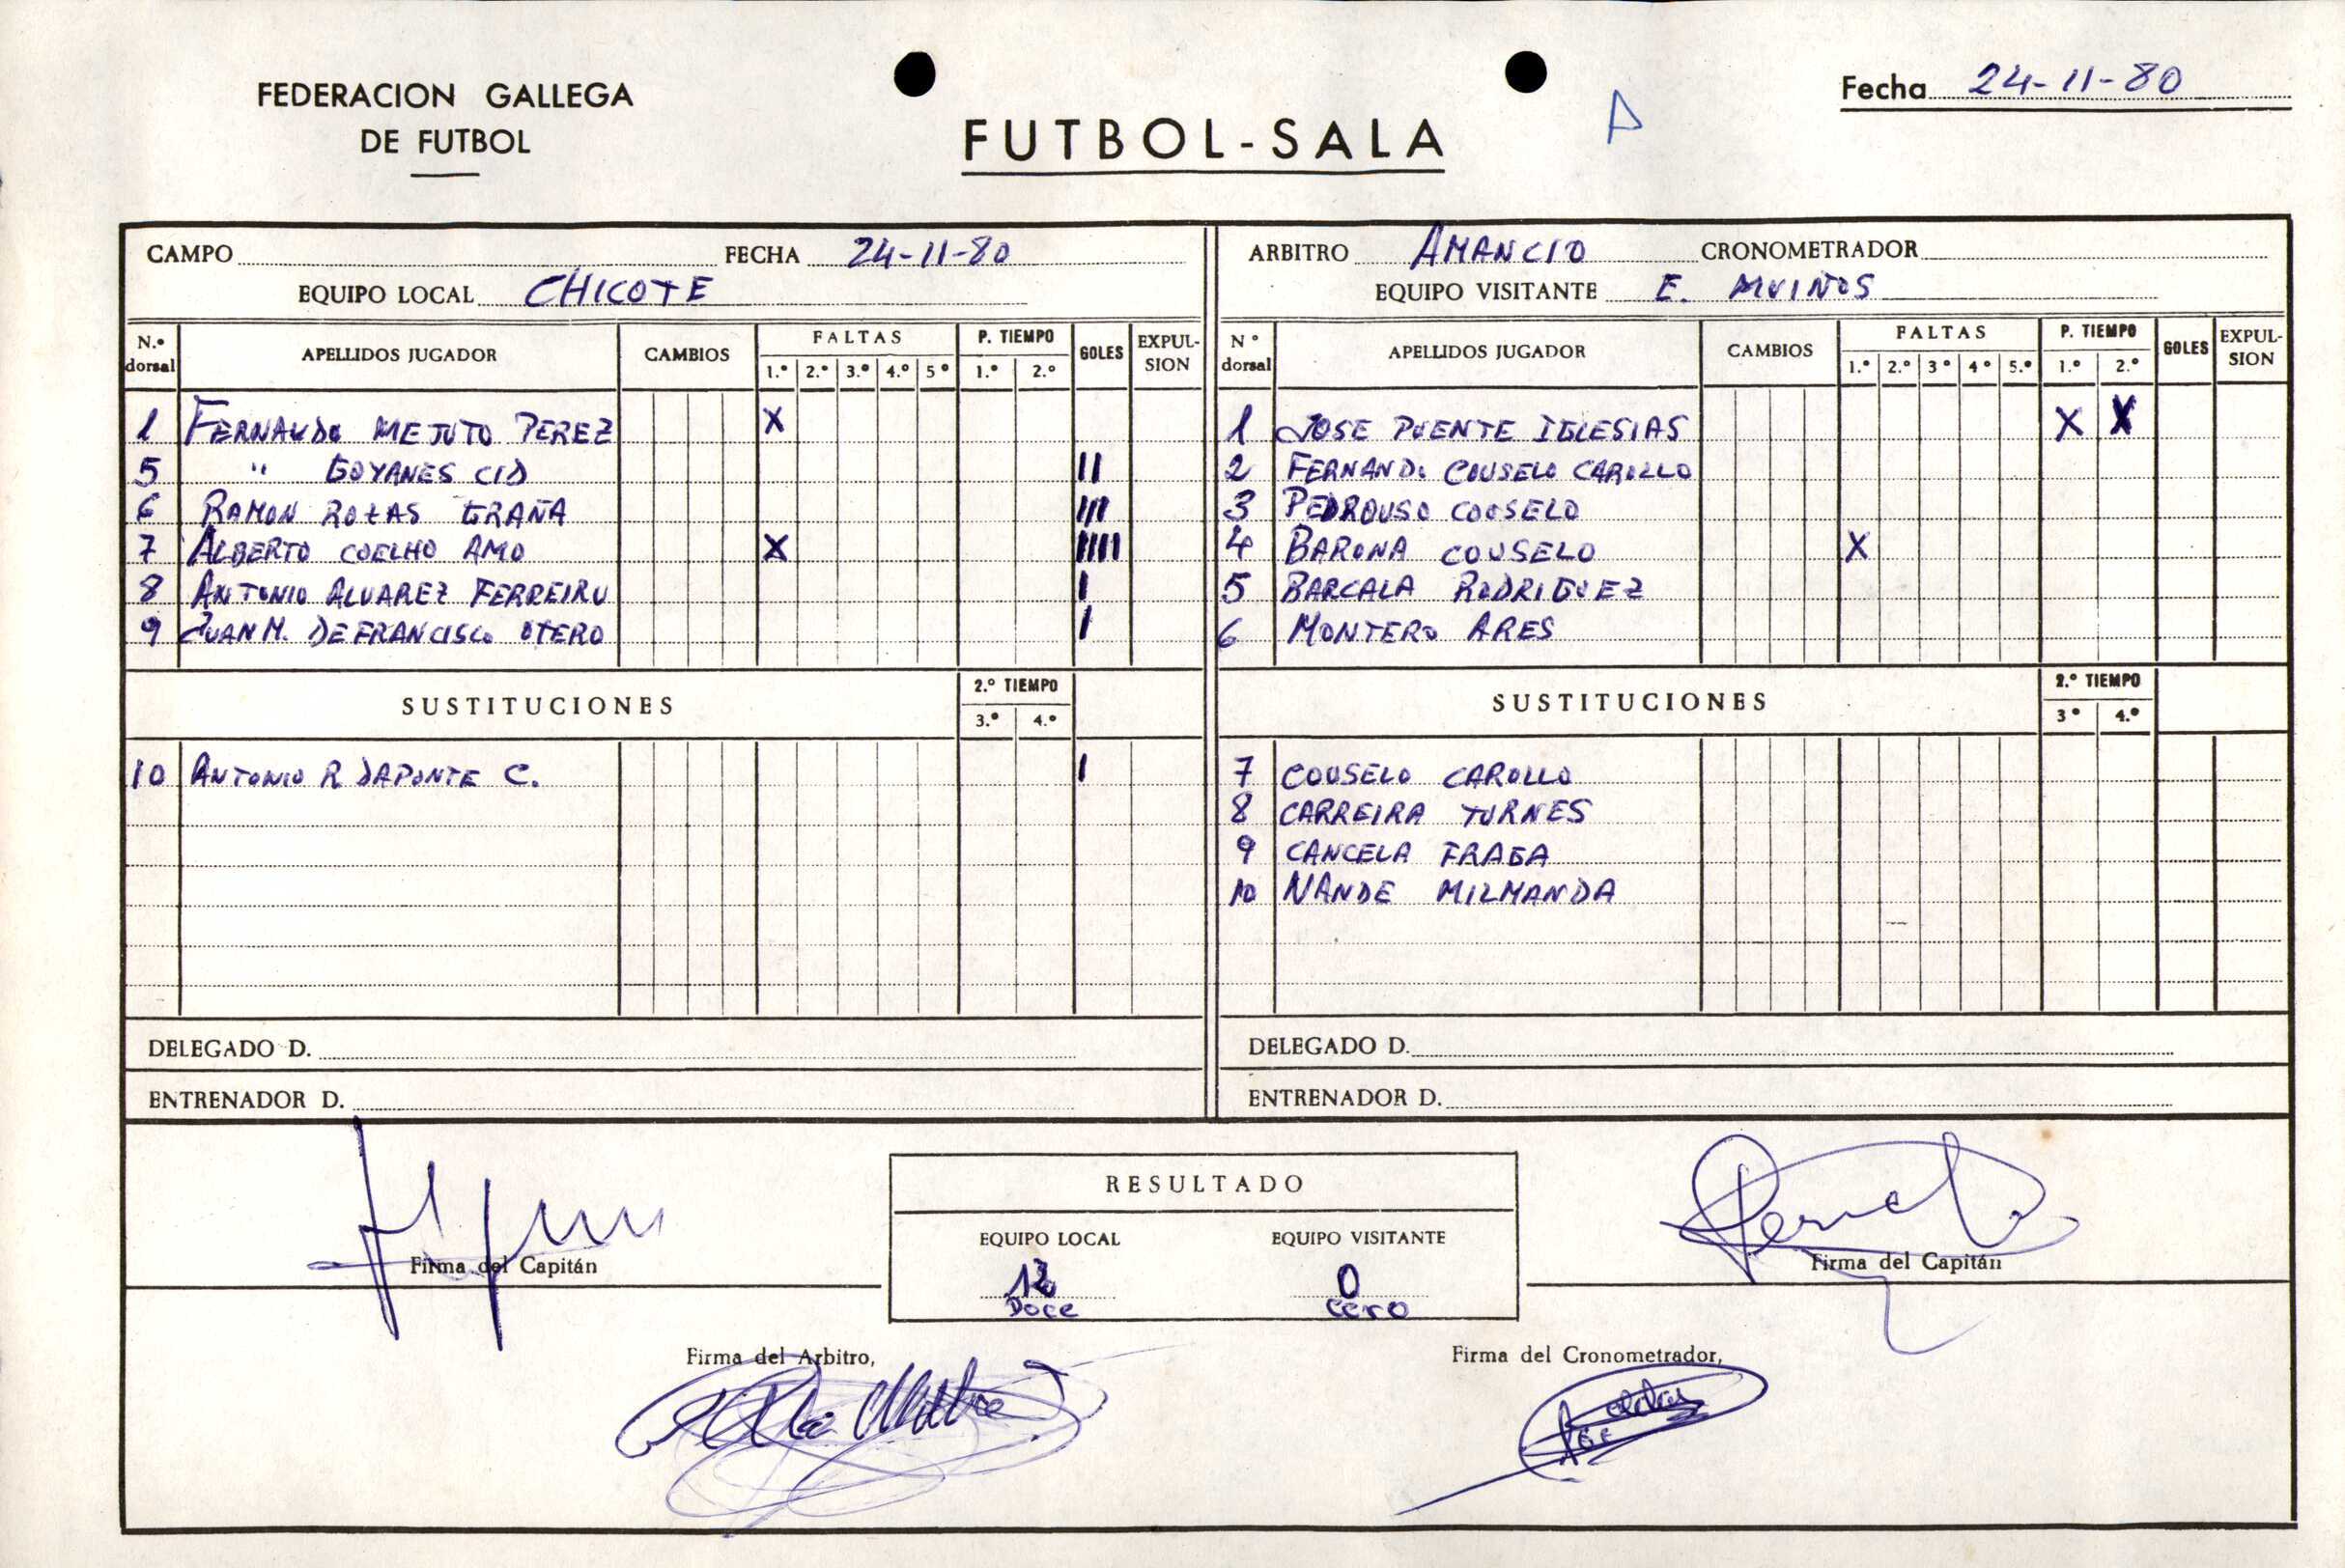 FEDERACION GALLEGA
DE FUTBOL
FUTBOL-SALA
A
Fecha 24-11-80
CAMPO FECHA 24-11-80
EQUIPO LOCAL CHICOTE
ARBITRO AMANCIO CRONOMETRADOR
EQUIPO VISITANTE E. MUIÑOS
N.º dorsal APELLIDOS JUGADOR CAMBIOS FALTAS 1.º 2.º 3.º 4.º 5º P. TIEMPO 1.º 2.º GOLES EXPULSION
1 FERNANDO MEJUTO PEREZ X
5 " GOYANES CID II
6 RAMON ROZAS GRAÑA III
7 ALBERTO COELHO AMO X IIIII
8 ANTONIO ALVAREZ FERREIRO I
9 JUAN M. DE FRANCISCO OTERO I
SUSTITUCIONES 2.º TIEMPO 3.º 4.º
10 ANTONIO R DAPONTE C. I
DELEGADO D.
ENTRENADOR D.
N º dorsal APELLIDOS JUGADOR CAMBIOS FALTAS 1.º 2.º 3º 4º 5.º P. TIEMPO 1.º 2.º GOLES EXPULSION
1 JOSE PUENTE IGLESIAS X X
2 FERNANDO COUSELO CAROLLO
3 PEDROUSO COUSELO
4 BARONA COUSELO X
5 BARCALA RODRIGUEZ
6 MONTERO ARES
SUSTITUCIONES 2.º TIEMPO 3º 4.º
7 COUSELO CAROLLO
8 CARREIRA TURNES
9 CANCELA FRAGA
10 NANDE MILMANDA
DELEGADO D.
ENTRENADOR D.
Firma del Capitán
RESULTADO
EQUIPO LOCAL EQUIPO VISITANTE
12 0
Doce cero
Firma del Capitán
Firma del Arbitro,
Firma del Cronometrador,